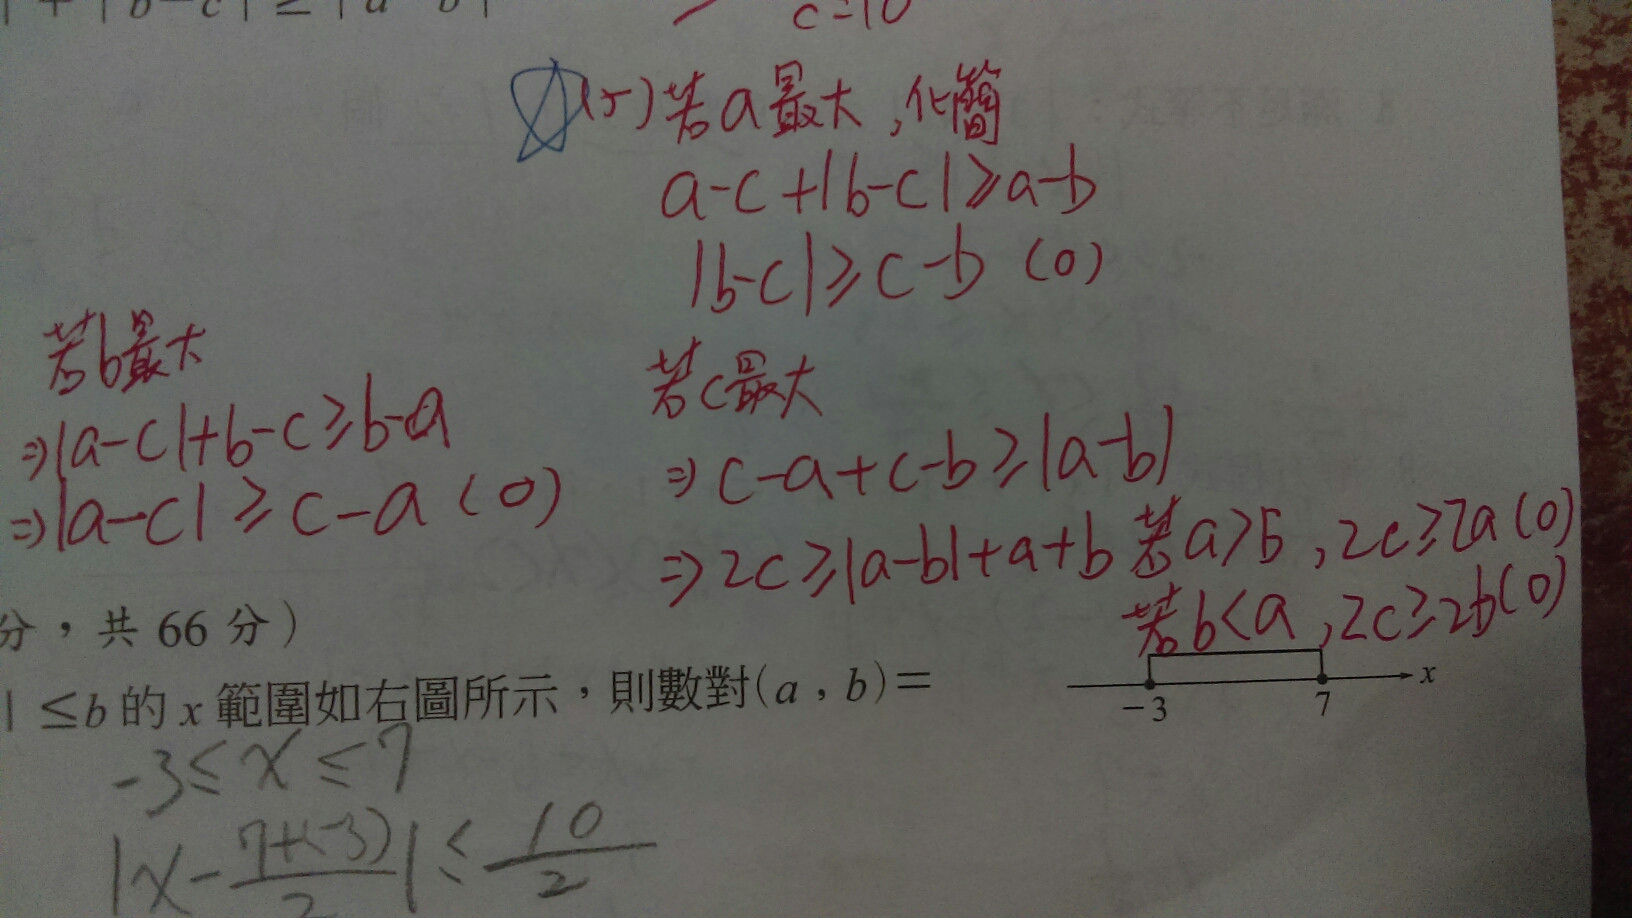 | + | b - c | ≥ | a - b |
c=10
(5) 若a最大,化簡
a-c+|b-c|≥a-b
|b-c|≥c-b (0)
若b最大
⇒|a-c|+b-c≥b-a
⇒|a-c|≥c-a (0)
若c最大
⇒c-a+c-b≥|a-b|
⇒2c≥|a-b|+a+b 若a>b,2c≥2a(0)
若b<a,2c≥2b(0)
分,共 66 分)
| ≤b 的 x 範圍如右圖所示,則數對(a,b)=
-3 7 x
-3≤x≤7
|x-\frac{7+(-3)}{2}|≤\frac{10}{2}